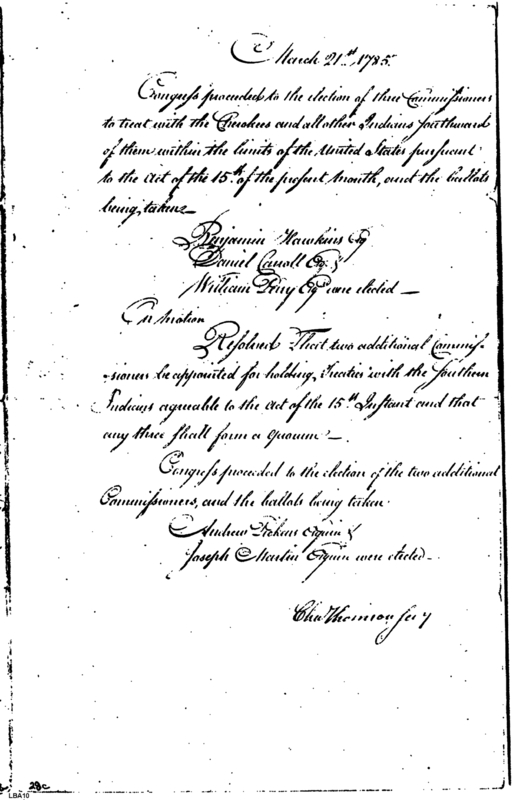 March 21st, 1785.
Congress proceeded to the election of three Commissioners
to treat with the Cherokees and all other Indians Southward
of them within the limits of the United States pursuant
to the Act of the 15th. of the present Month, and the ballots
being taken—
Benjamin Hawkins Esq
Daniel Carroll Esq. &
William Perry Esqr were elected —
On Motion
Resolved That two additional Commis-
-sioners be appointed for holding Treaties with the Southern
Indians agreable to the Act of the 15th Instant and that
any three shall form a quorum —.
Congress proceeded to the election of the two additional
Commissioners, and the ballots being taken
Andrew Pickens Esquire &
Joseph Martin Esquire were elected —
Chas Thomson Secy
28c
LBA10